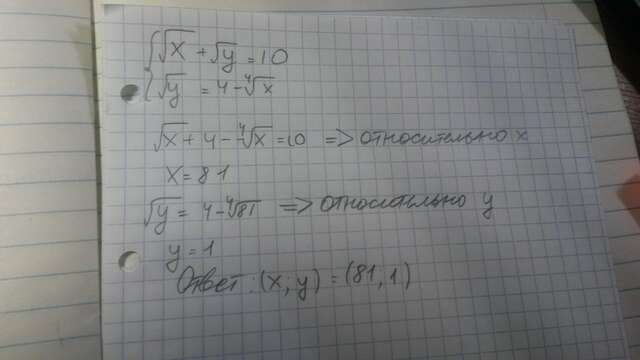 √x + √y = 10
√y = 4 - ∜x
√x + 4 - ∜x = 10 => относительно x
x = 81
√y = 4 - ∜81 => относительно y
y = 1
Ответ: (x, y) = (81, 1)